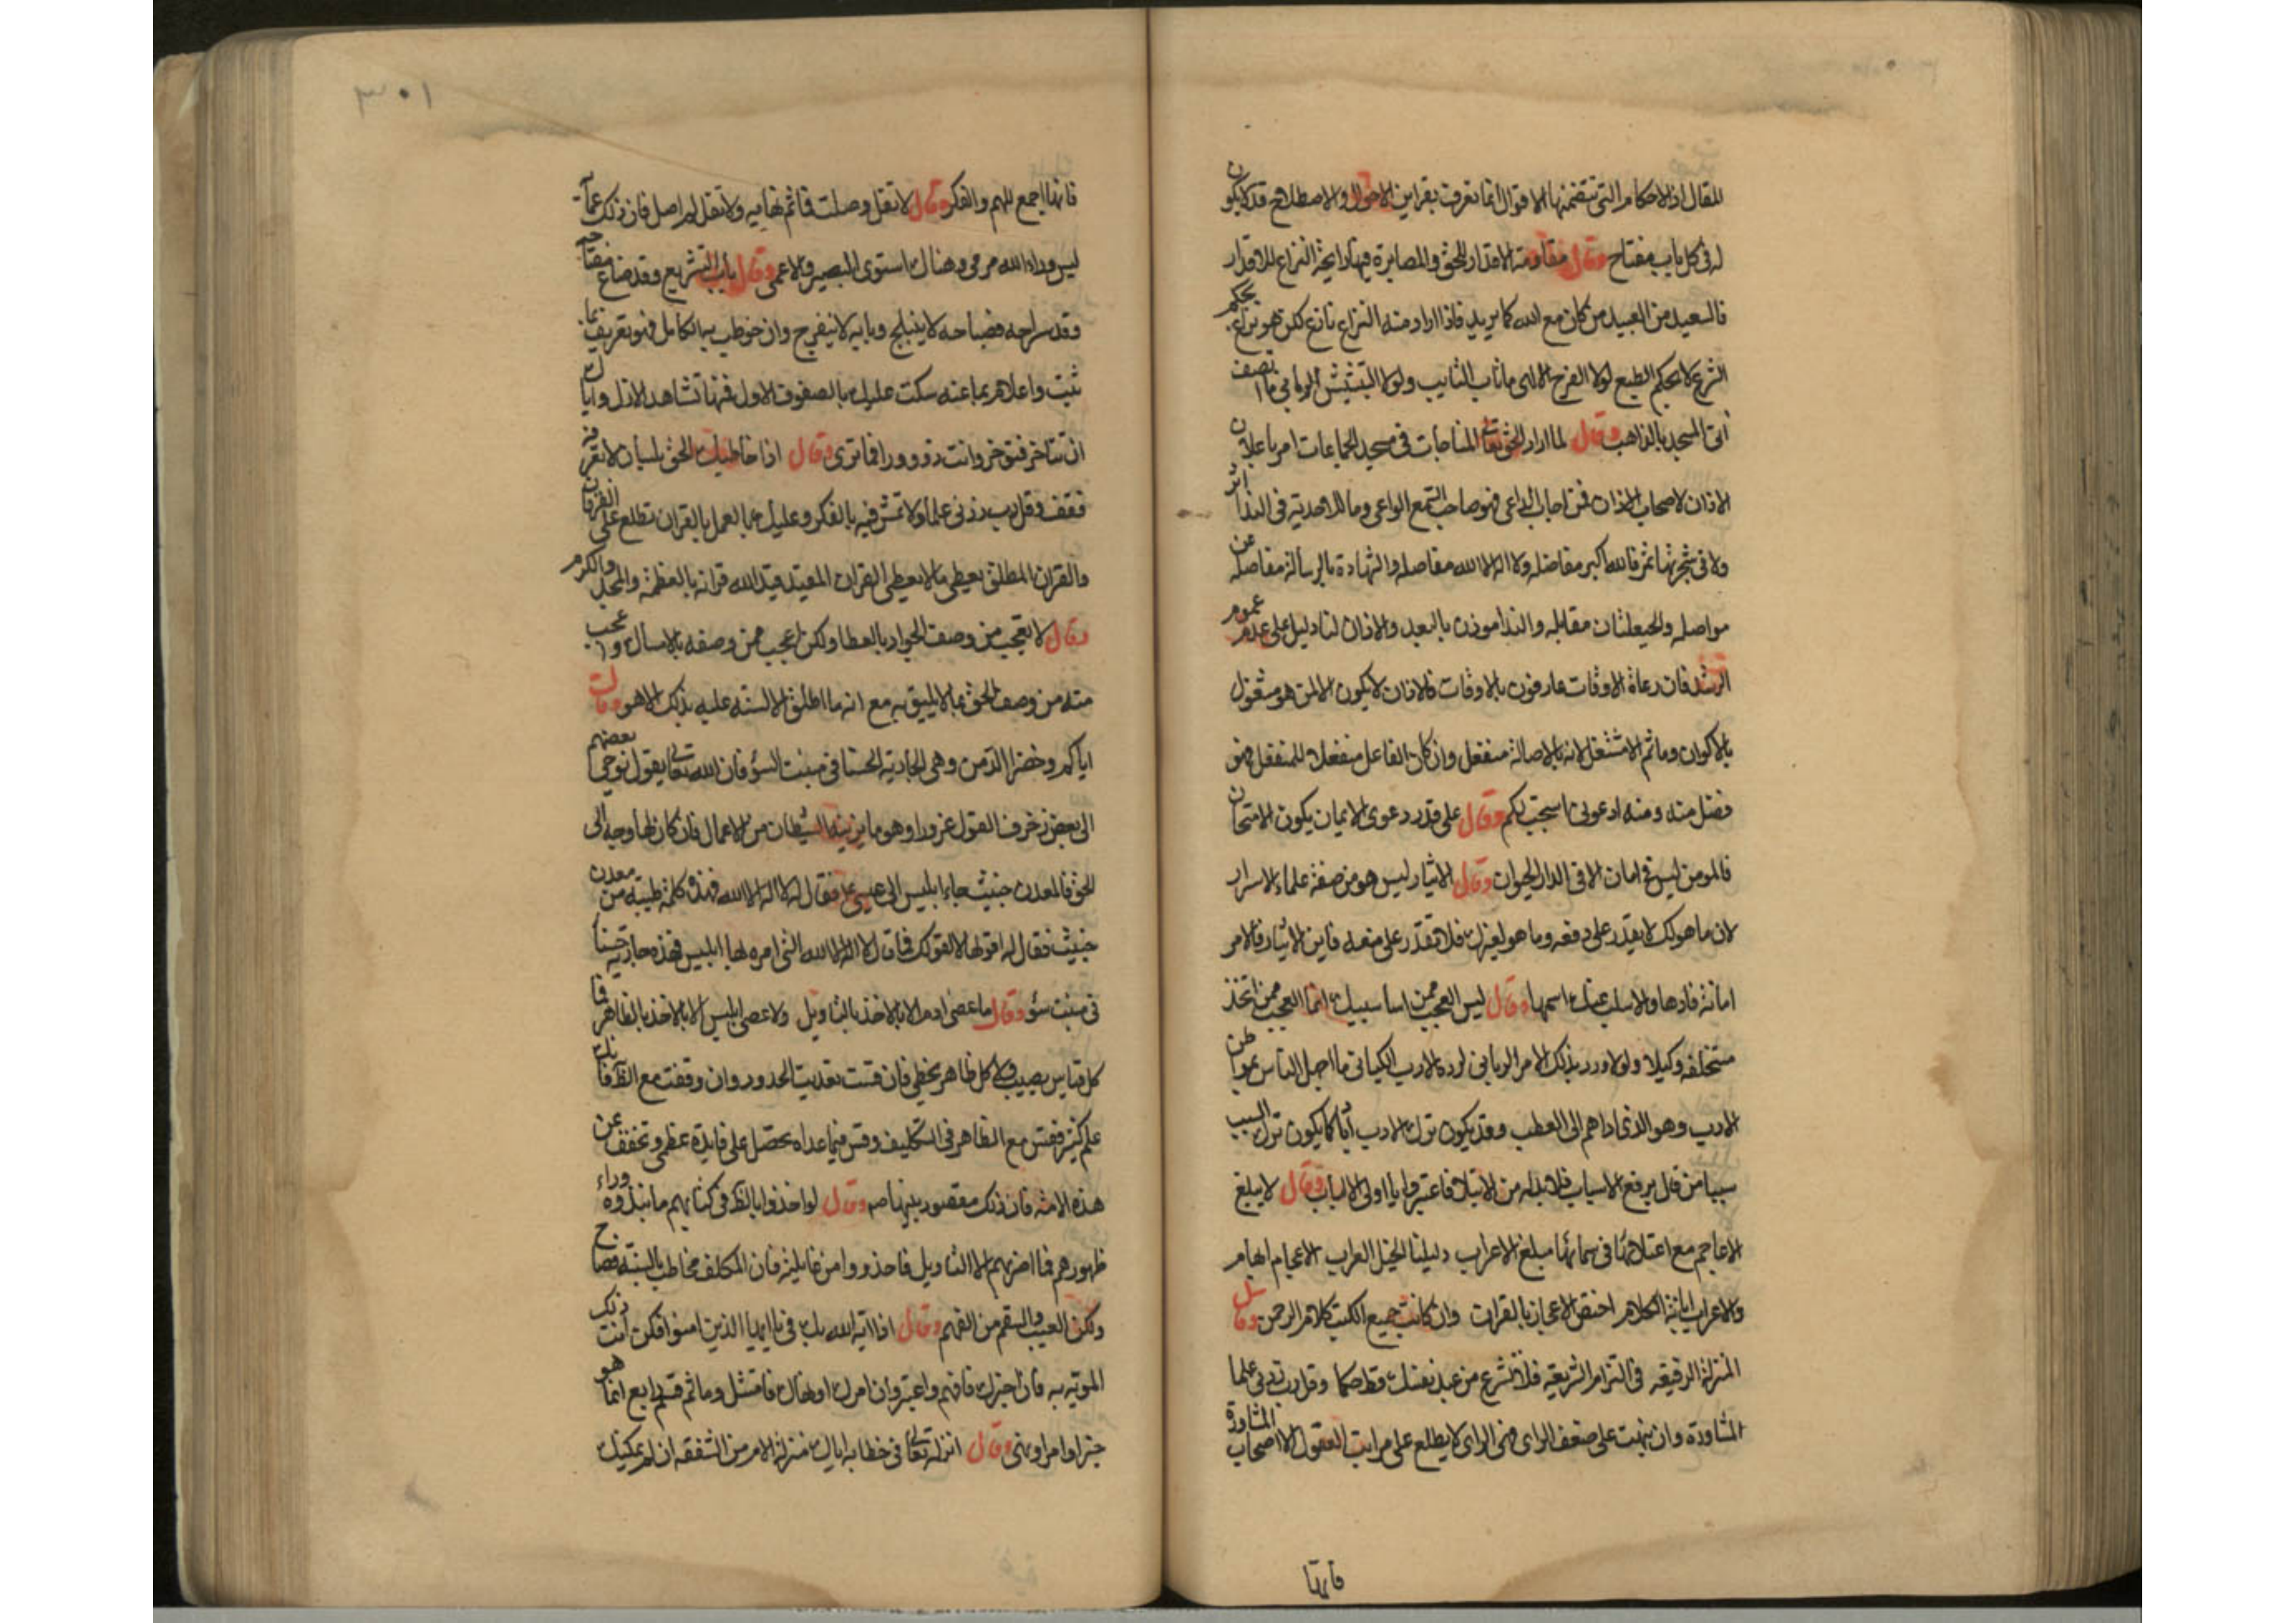 للمقال اذ الاحكام التي تتضمنها الاقوال انما تعرفت بقراين الاحوال والاصطلاح قد لا يكون
له في كل باب مفتاح وقال مقاومة الاقدار للحق والمصابرة فيها رايحة النزاع للاقدار
فالسعيد من العبيد من كان مع الله كما يريد فاذا اراد منه النزاع نازع لكن هو نزاع بحكم
الشرع لا بحكم الطبع لولا الفرح الالهي ما تاب التايب ولولا التبشش الرباني ما اتصف
اتى المسجد بالذاهب وقال لما اراد الحق تعالى المناجات في مسجد الجماعات امر باعلان
الاذان لاصحاب الاذان فمن اجاب الداعي فهو صاحب السمع الواعي وما للاحدية في الندا اثر
ولا في شجرتها ثمر فالله اكبر مفاضله ولا اله الا الله مفاصله والشهادة بالرسالة مفاصله عن
مواصله والحيعلتان مقابله والندا موذن بالبعد والاذان لنا دليل على عدم عموم
الرشد فان رعاة الاوقات عارفون بالاوقات فالاذان لا يكون الا لمن هو مشغول
بالاكوان وما ثم الا مشتغل لانه بالاصالة منفعل وان كان الفاعل منفعلا للمنفعل فهو
فضل منه ومنه ادعوني استجب لكم وقال على قدر دعوى الايمان يكون الامتحان
فالمومن ليس في امان الا في الدار الحيوان وقال الايثار ليس هو من صفة علماء الاسرار
لان ما هو لك لا يقدر على دفعه وما هو لغيرك فلا تقدر على منعه فاين الايثار فالامر
امانة فادها والا سلب عنك اسمها وقال ليس العجب ممن اسا سبيلك انما العجب ممن اتخذ
مستخلفه وكيلا ولولا ورد بذلك الامر الرباني لرده الادب الكياني ما اجهل الناس بمواطن
الادب وهو الذي اداهم الى العطب وقد يكون ترك الادب ادبا كما يكون ترك السبب
سببا من قال برفع الاسباب فلا بد له من الابتلا فاعتبروا يا اولي الالباب وقال لا يبلغ
الاعاجم مع اعتلائها في سمائها مبلغ الاعراب دليلنا الخيل العراب الاعجام ابهام
والاعراب ابانة الكلام اختص الاعجاز بالقران وان كانت جميع الكتب كلام الرحمن وقال
المنزلة الرفيعة في التزام الشريعة فلا تشرع من عند نفسك قط حكما وقل رب زدني علما
المشاورة وان نبهت على ضعف الراي فهي الراي لا يطلع على مراتب العقول الا اصحاب المشاورة
فانها
٣٠١
فانها اجمع للهم والفكر وقال لا تقل وصلت فما ثم نهايه ولا تقل لم اصل فان ذلك عمايه
ليس وراء الله مرمى وهنالك استوى البصير والاعمى وقال باب التشريع وقد ضاع مفتاحه
وقد سراجه فصباحه لا ينبلج وبابه لا ينفرج وان خوطب به الكامل فهو تعريف بما
ثبت واعلام بما عنه سكت عليك بالصفوف الاول فمنها تشاهد الازل واياك
ان تتاخر فتوخر وانت ذو ورا فما ترى وقال اذا خاطبك الحق بلسان لا تعرفه
فقف وقل رب زدني علما ولا تمش فيه بالفكر وعليك بالعمل بالقران تطلع على الفرقان
والقران المطلق يعطي ما لا يعطي القران المقيد قيد الله قرانه بالعظمة والمجد والكرم
وقال لا تعجب من وصف الجواد بالعطا ولكن اعجب ممن وصفه بالامساك واعجب
منه من وصف الحق بما لا يليق به مع انه ما اطلق الالسنه عليه بذلك الا هو وقال
اياكم وخضرا الدمن وهي الجارية الحسنا في منبت السؤ فان الله تعالى يقول نوحي بعضهم
الى بعض زخرف القول غرورا وهو ما يزينه الشيطان من الاعمال فان كان لها وجه الى
الحق فالمعدن خبيث جاء ابليس الى عيسى فقال له قل لا اله الا الله فهذه كلمة طيبة من معدن
خبيث فقال له اقولها لا لقولك فما قال لا اله الا الله التي امره لها ابليس فهذه جارية حسنا
في منبت سؤ وقال ما عصى ادم الا بالاخذ بالتاويل ولا عصى ابليس الا بالاخذ بالظاهر فما
كل قياس يصيب ولا كل ظاهر يخطي فان قست تعديت الحدود وان وقفت مع الظاهر فاتك
علم كثير فقف مع الظاهر في التكليف وقس فيما عداه تحصل على فايدة عظمى وتخفف عن
هذه الامة فان ذلك مقصود نبيها ص وقال لو اخذوا بالظاهر في كتابهم ما نبذوه وراء
ظهورهم فما اضر بهم الا التاويل فاحذروا من غايلته فان المكلف مخاطب بالسنة فصاح
ولكن العيب والسقم من الفهم وقال اذا ايه الله بك في يا ايها الذين امنوا فكن انت ذلك
المويه به فان اخبرك فافهم واعتبر وان امرك او نهاك فامتثل وما ثم قسم رابع انما هو
خبر او امر او نهي وقال انزله تعالى في خطابه اياك منزلة الام من الشفقه ان لم يمكنك